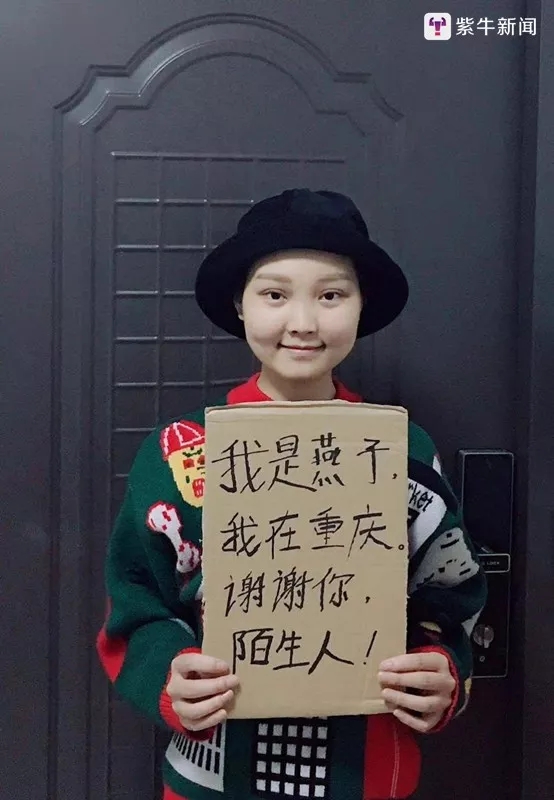 紫牛新闻
我是燕子,
我在重庆。
谢谢你,
陌生人!
rket
LOCK